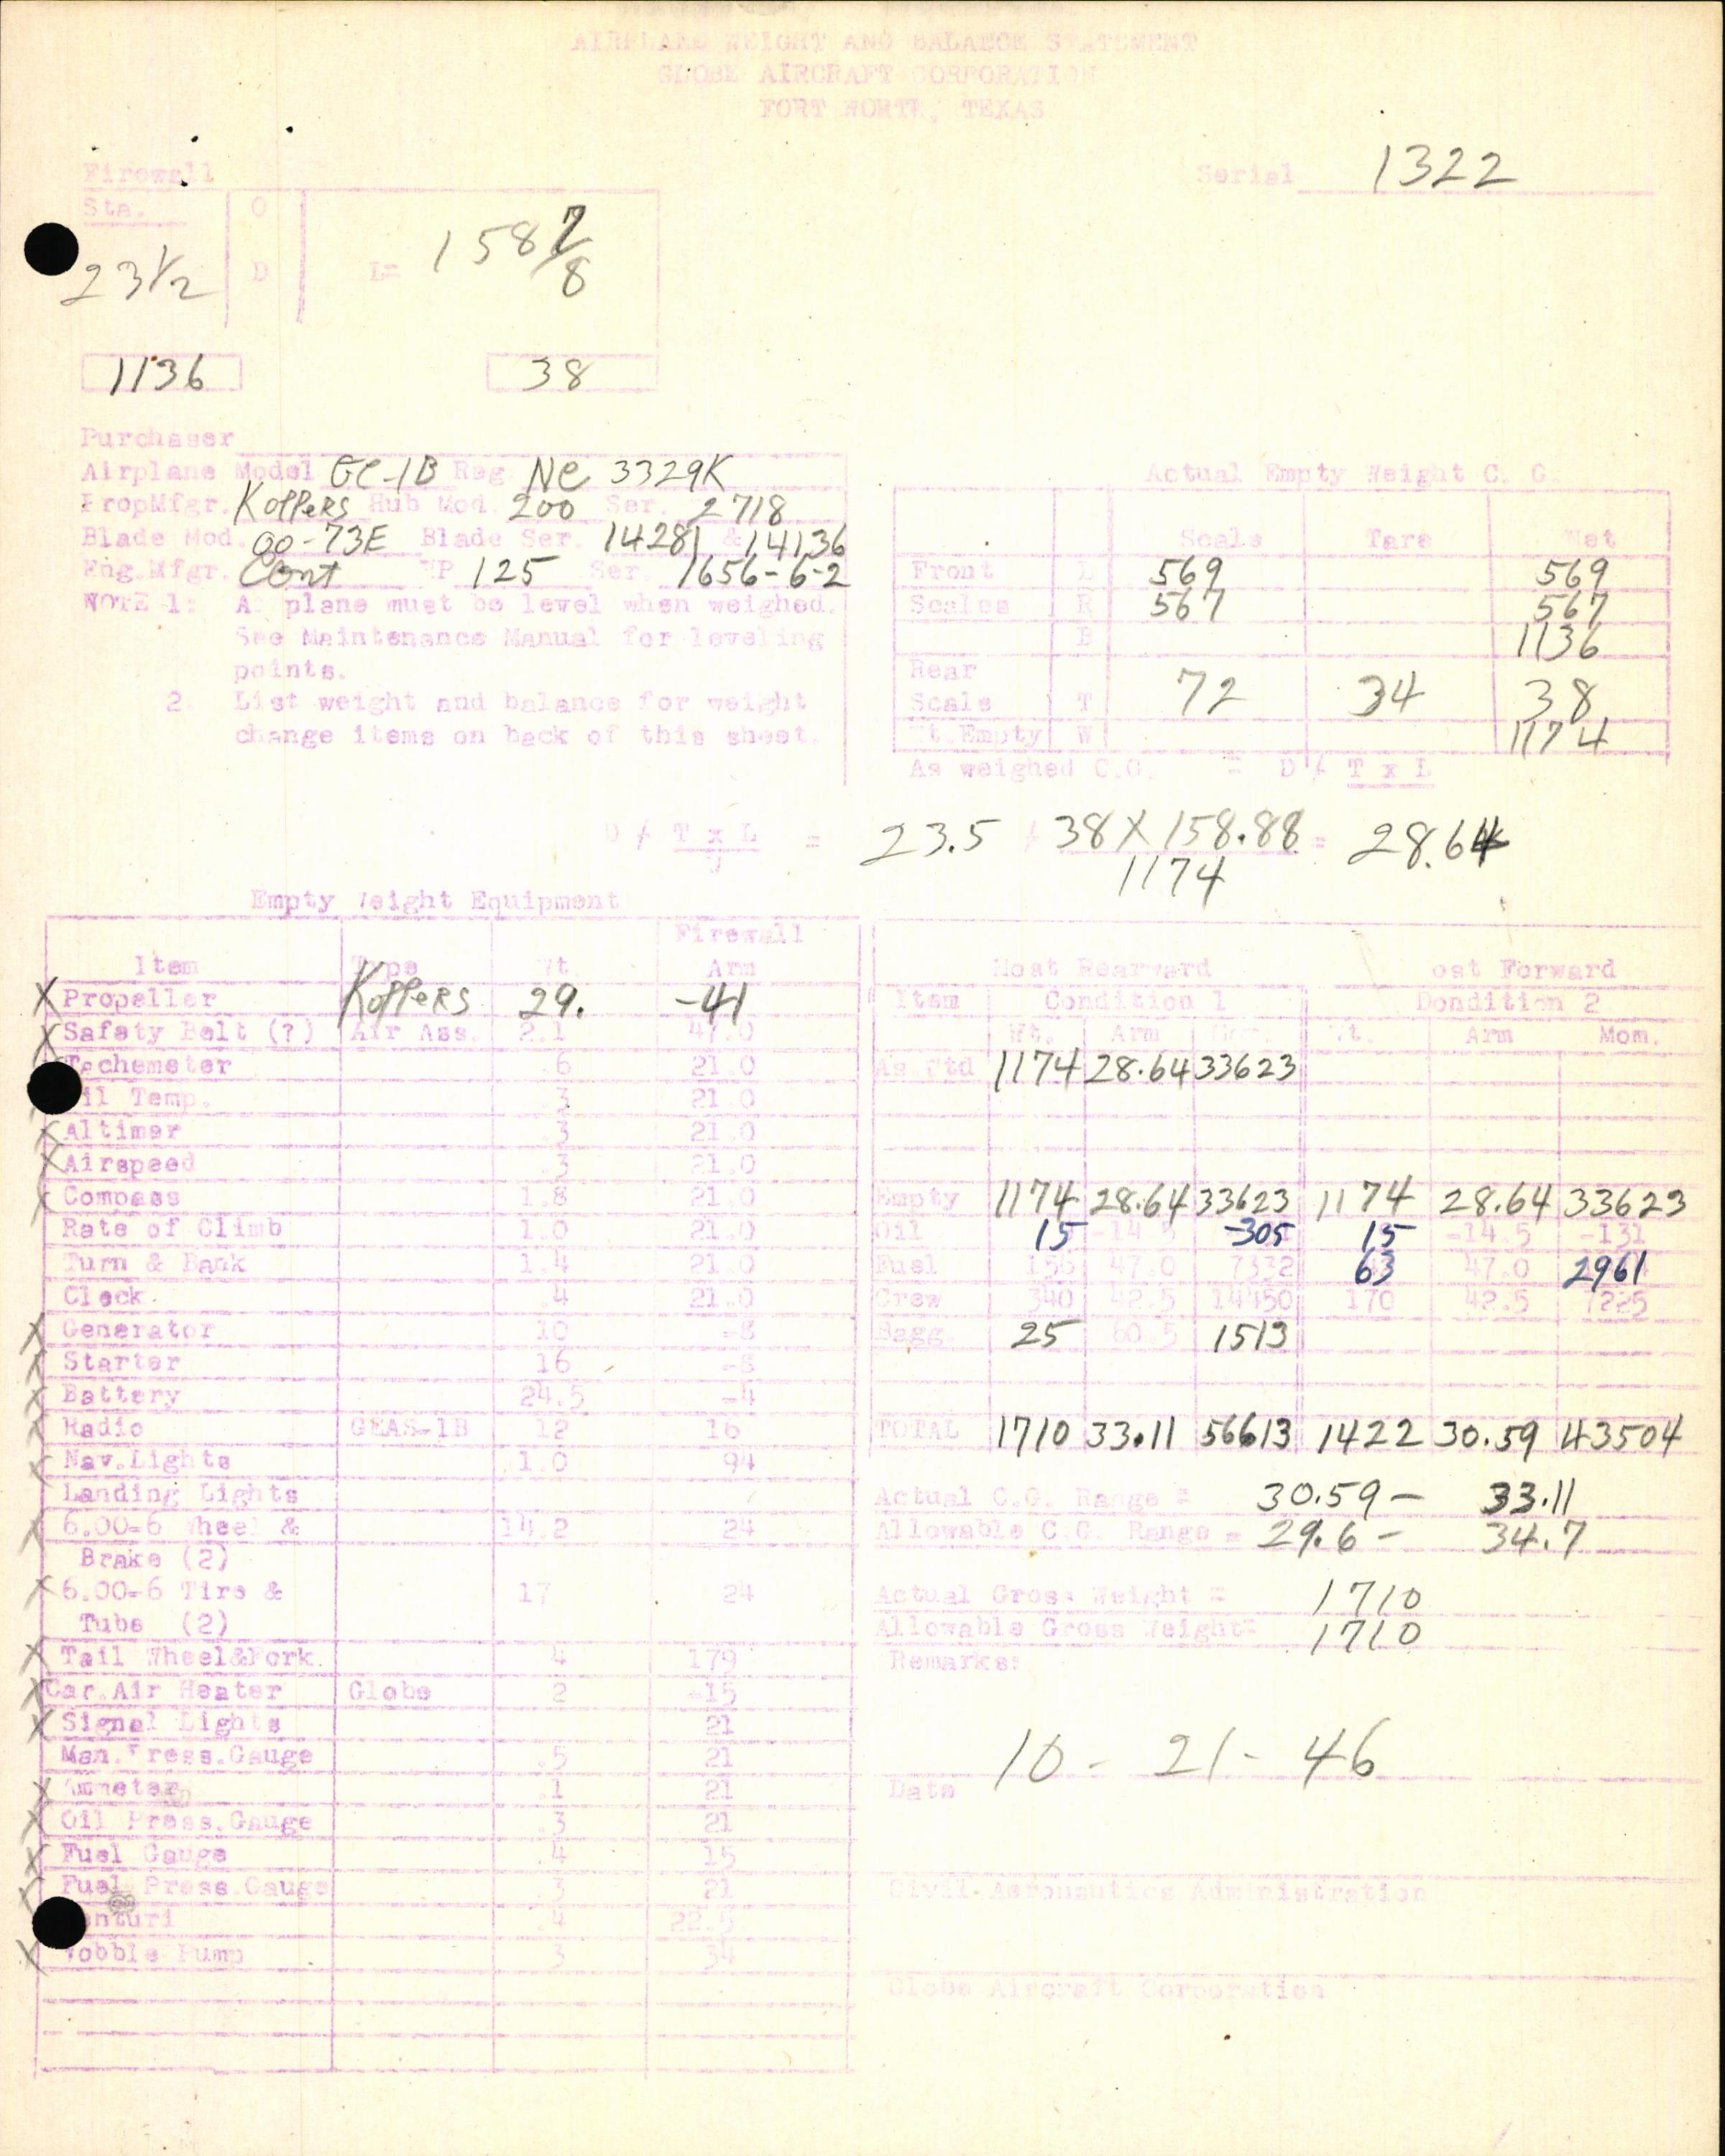 AIRPLANE WEIGHT AND BALANCE STATEMENT
GLOBE AIRCRAFT CORPORATION
FORT WORTH, TEXAS
Firewall
Serial 1322
Sta. O
23 1/2 D L= 158 7/8
1136 38
Purchaser
Airplane Model GC-1B Reg NC 3329K
PropMfgr. Koppers Hub Mod. 200 Ser. 2718
Blade Mod. 00-73E Blade Ser. 14281 & 14136
Eng.Mfgr. Cont HP 125 Ser. 1656-6-2
NOTE 1: A plane must be level when weighed.
See Maintenance Manual for leveling
points.
2. List weight and balance for weight
change items on back of this sheet.
Actual Empty Weight C. G.
Scale Tare Net
Front L 569 569
Scales R 567 567
B 1136
Rear
Scale T 72 34 38
Wt.Empty W 1174
As weighed C.G. = D / T x L
D / T x L = 23.5 / 38 X 158.88 = 28.64
W 1174
Empty Weight Equipment
Firewall
Item Type Wt. Arm
X Propeller Koppers 29. -41
X Safety Belt (?) Air Ass. 2.1 47.0
Techemeter .6 21.0
il Temp. .3 21.0
X Altimer .3 21.0
X Airspeed .3 21.0
X Compass 1.8 21.0
Rate of Climb 1.0 21.0
Turn & Bank 1.4 21.0
Clock .4 21.0
X Generator 10 -8
X Starter 16 -8
X Battery 24.5 -4
X Radio GEAS-1B 12 16
X Nav.Lights 1.0 94
Landing Lights
X 6.00-6 Wheel & 14.2 24
Brake (2)
X 6.00-6 Tire & 17 24
Tube (2)
X Tail Wheel&Fork. 4 179
X Car.Air Heater Globe 2 -15
X Signal Lights 21
Man.Press.Gauge .5 21
X Ammeter .1 21
X Oil Press.Gauge .3 21
X Fuel Gauge .4 15
X Fuel Press Gauge .3 21
enturi .4 22.5
X Wobble Pump 3 34
Most Rearward ost Forward
Item Condition 1 Dondition 2
Wt. Arm Mom. Wt. Arm Mom.
As Wtd 1174 28.64 33623
Empty 1174 28.64 33623 1174 28.64 33623
Oil 15 -14.5 -305 15 -14.5 -131
Fuel 156 47.0 7332 63 47.0 2961
Crew 340 42.5 14450 170 42.5 7225
Bagg. 25 60.5 1513
TOTAL 1710 33.11 56613 1422 30.59 43504
Actual C.G. Range = 30.59 - 33.11
Allowable C.G. Range = 29.6 - 34.7
Actual Gross Weight = 1710
Allowable Gross Weight= 1710
Remarks:
10 - 21 - 46
Date
Civil Aeronautics Administration
Globe Aircraft Corporation